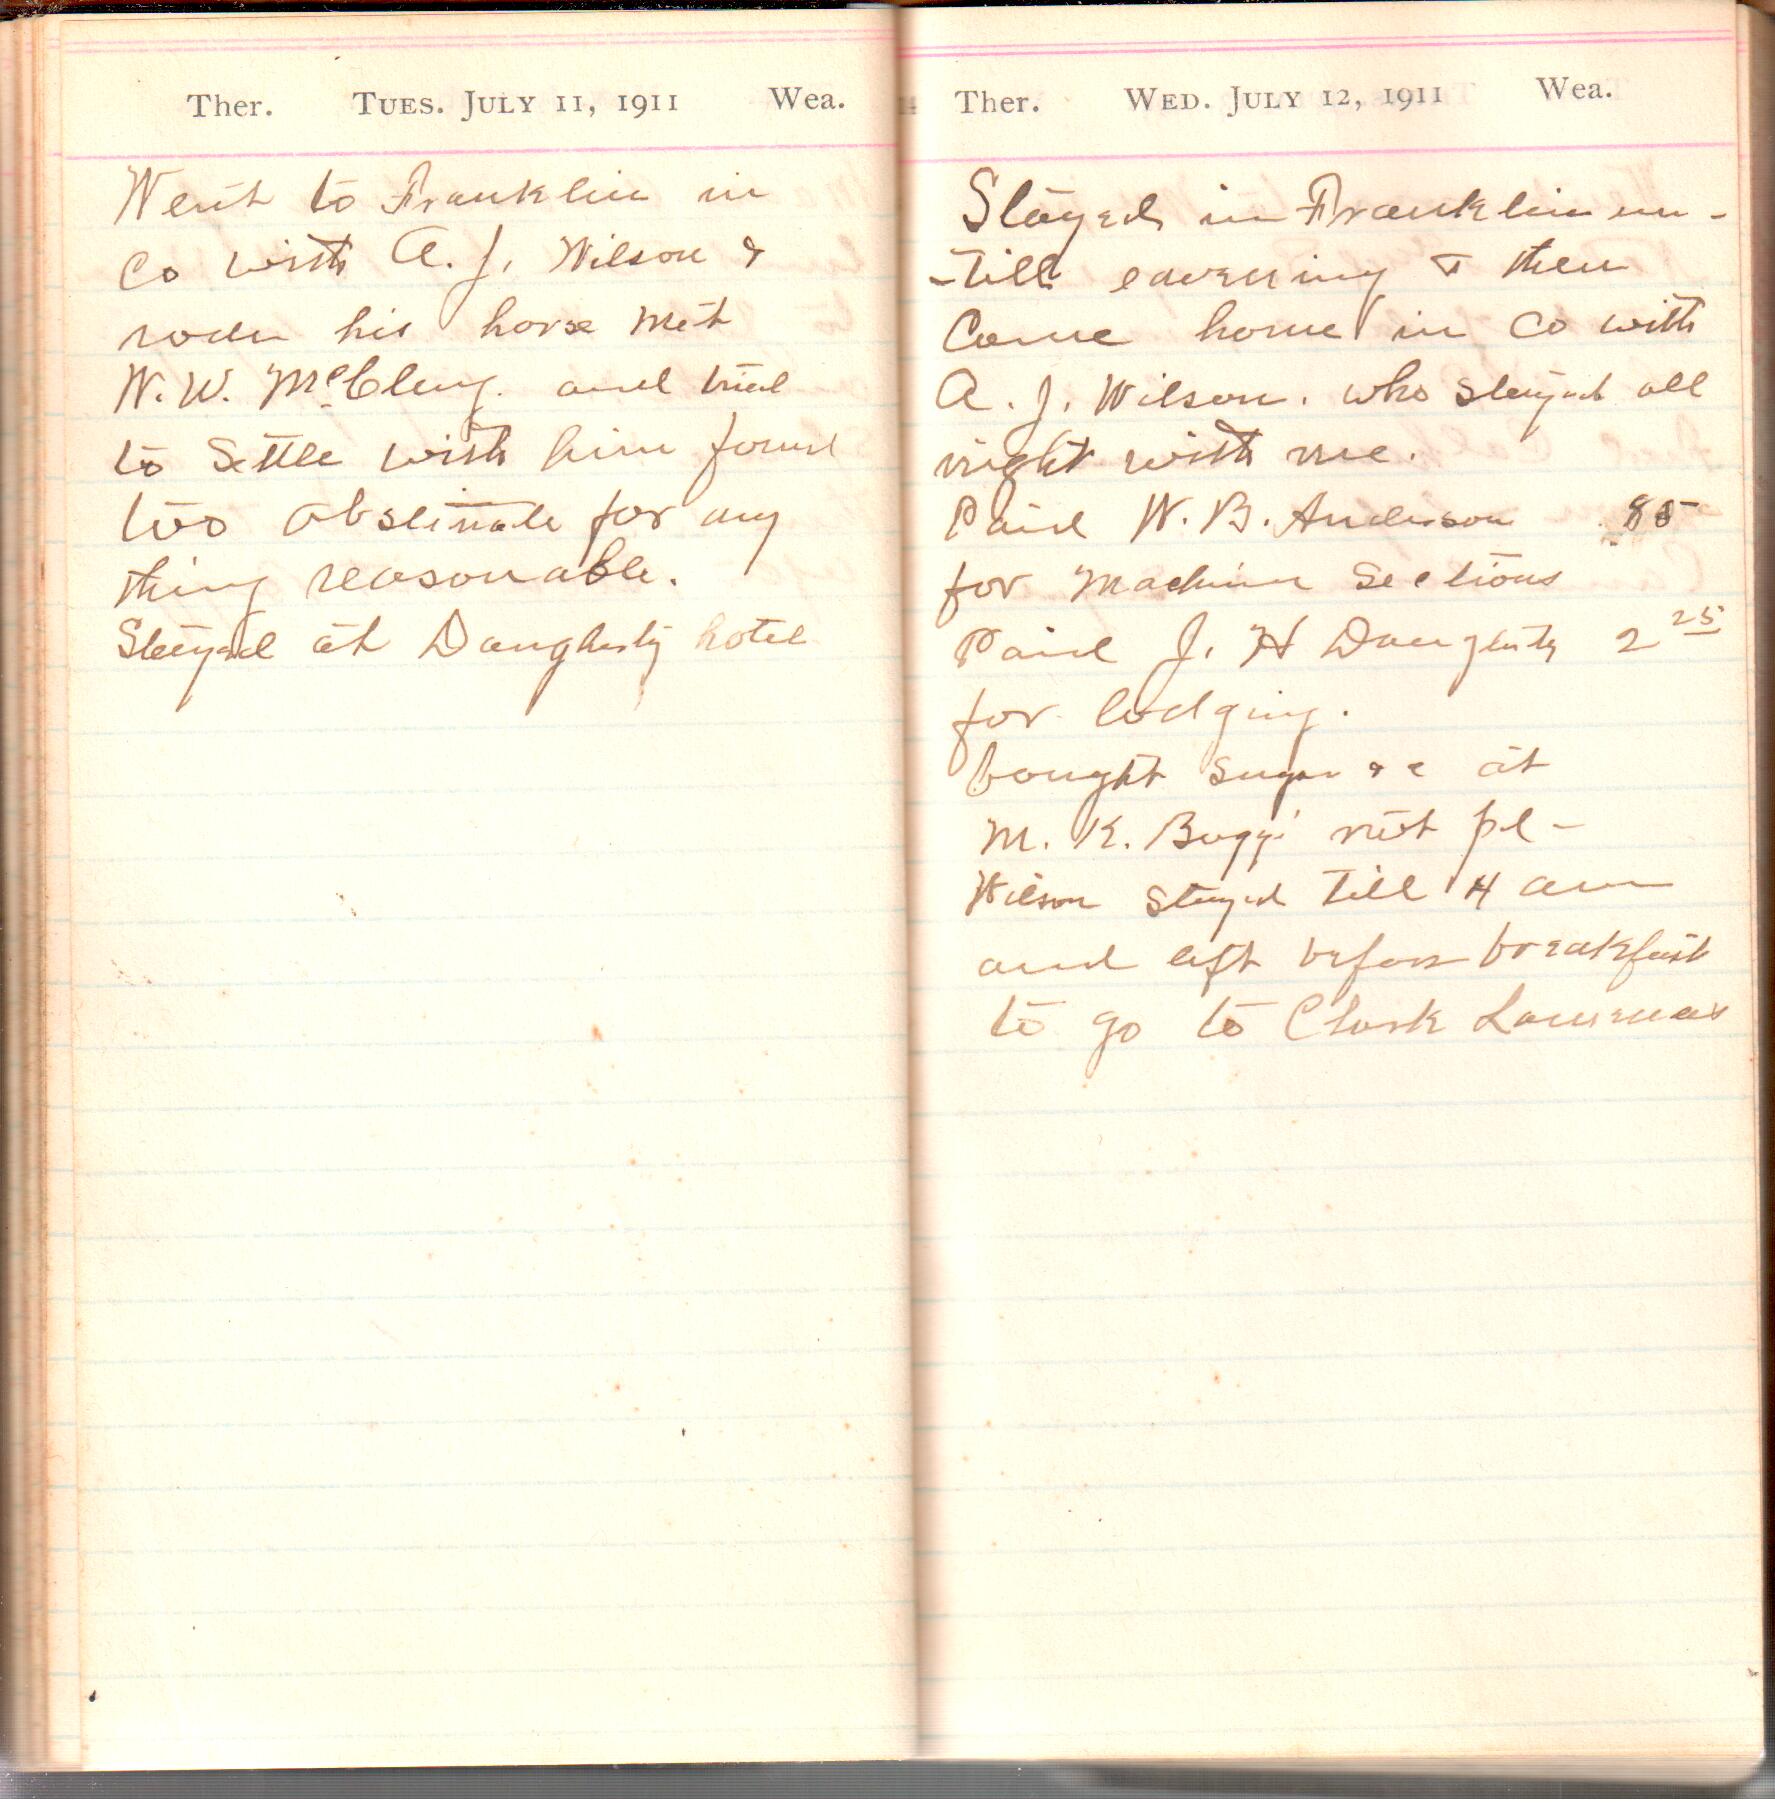 Ther. TUES. JULY 11, 1911 Wea.
Went to Franklin in
Co with A. J. Wilson &
rode his horse met
W. W. McClung. and tried
to settle with him found
too obstinate for any
thing reasonable.
Stayed at Daugherty hotel
Ther. WED. JULY 12, 1911 Wea.
Stayed in Franklin un-
-till eavening & then
Came home in Co with
A. J. Wilson. who stayed all
night with me.
Paid W. B. Anderson .85
for Machine Sections
Paid J. H Daugherty 2 25
for lodging.
bought sugar &c at
M. K. Boggs not pd-
Wilson stayed till 4 am
and left before breakfast
to go to Clark